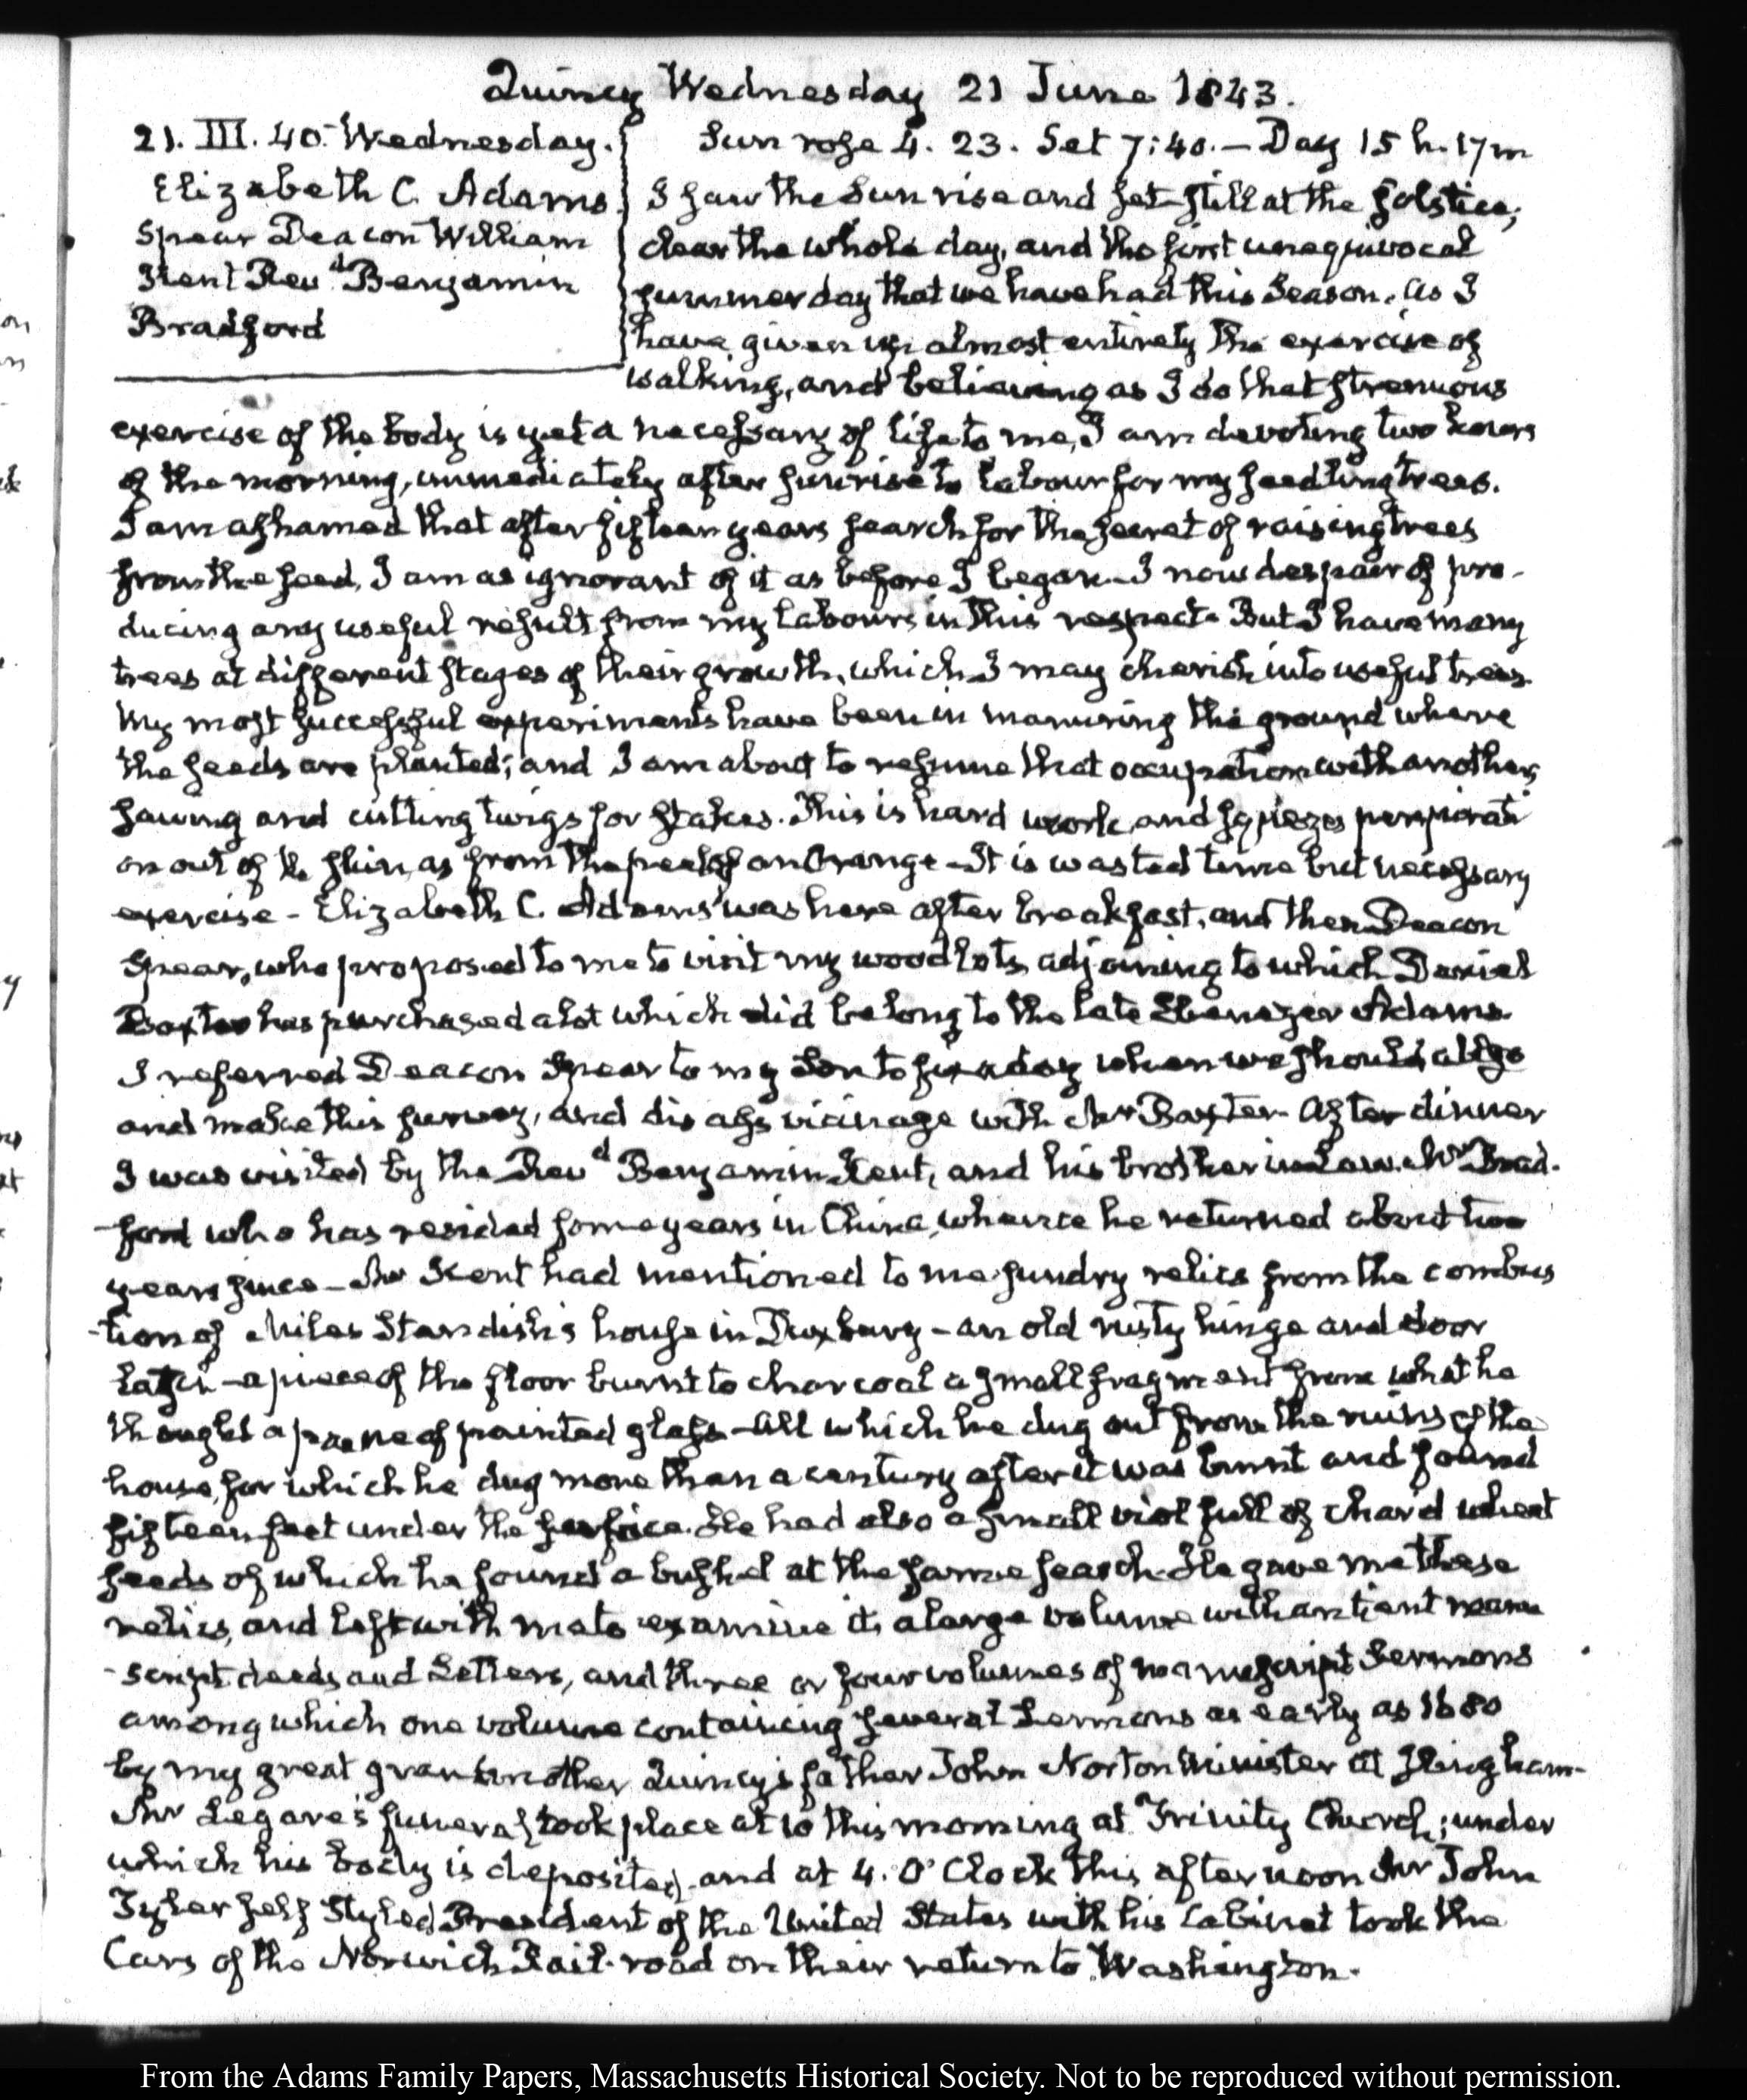 Quincy Wednesday 21 June 1843.
21. III. 40. Wednesday.
Elizabeth C. Adams
Spear Deacon William
Kent Revd. Benjamin
Bradford
Sun rose 4. 23. Set 7:40. — Day 15 h. 17 m
I saw the Sun rise and set still at the solstice;
clear the whole day, and the first unequivocal
summer day that we have had this Season. As I
have given up almost entirely the exercise of
walking, and believing as I do that strenuous
exercise of the body is yet a necessary of life to me, I am devoting two hours
of the morning, immediately after sunrise to labour for my seedling trees.
I am ashamed that after fifteen years search for the secret of raising trees
from the seed, I am as ignorant of it as before I began. I now despair of pro-
ducing any useful result from my labours in this respect. But I have many
trees at different stages of their growth, which I may cherish into useful trees
My most successful experiments have been in manuring the ground where
the seeds are planted; and I am about to resume that occupation with another
sawing and cutting twigs for stakes. This is hard work, and squeezes perspirati
on out of the skin, as from the peel of an Orange — It is wasted time but necessary
exercise — Elizabeth C. Adams was here after breakfast, and then Deacon
Spear, who proposed to me to visit my wood lots, adjoining to which Daniel
Baxter has purchased a lot which did belong to the late Ebenezer Adams.
I referred Deacon Spear to my Son to fix a day when we should all go
and make this survey, and discuss vicinage with Mr Baxter. After dinner
I was visited by the Revd Benjamin Kent, and his brother in Law. Mr Brad-
-ford who has resided some years in China, whence he returned about two
years since — Mr Kent had mentioned to me sundry relics from the combus
-tion of Miles Standish's house in Duxbury — an old rusty hinge and door
latch — a piece of the floor burnt to charcoal a small fragment from what he
thought a pane of painted glass — All which he dug out from the ruins of the
house, for which he dug more than a century after it was burnt and found
fifteen feet under the surface. He had also a small viol full of char'd wheat
seeds of which he found a bushel at the same search. He gave me these
relics, and left with me to examine it, a large volume with antient manu
-script deeds and Letters, and three or four volumes of manuscript Sermons
among which one volume containing several Sermons as early as 1680
by my great grandmother Quincy's father John Norton Minister at Hingham —
Mr Legare's funeral took place at 10 this morning at Trinity Church; under
which his body is deposited, and at 4. O'Clock this afternoon Mr John
Tyler self Styled President of the United States with his Cabinet took the
Cars of the Norwich Rail-road on their return to Washington.
From the Adams Family Papers, Massachusetts Historical Society. Not to be reproduced without permission.